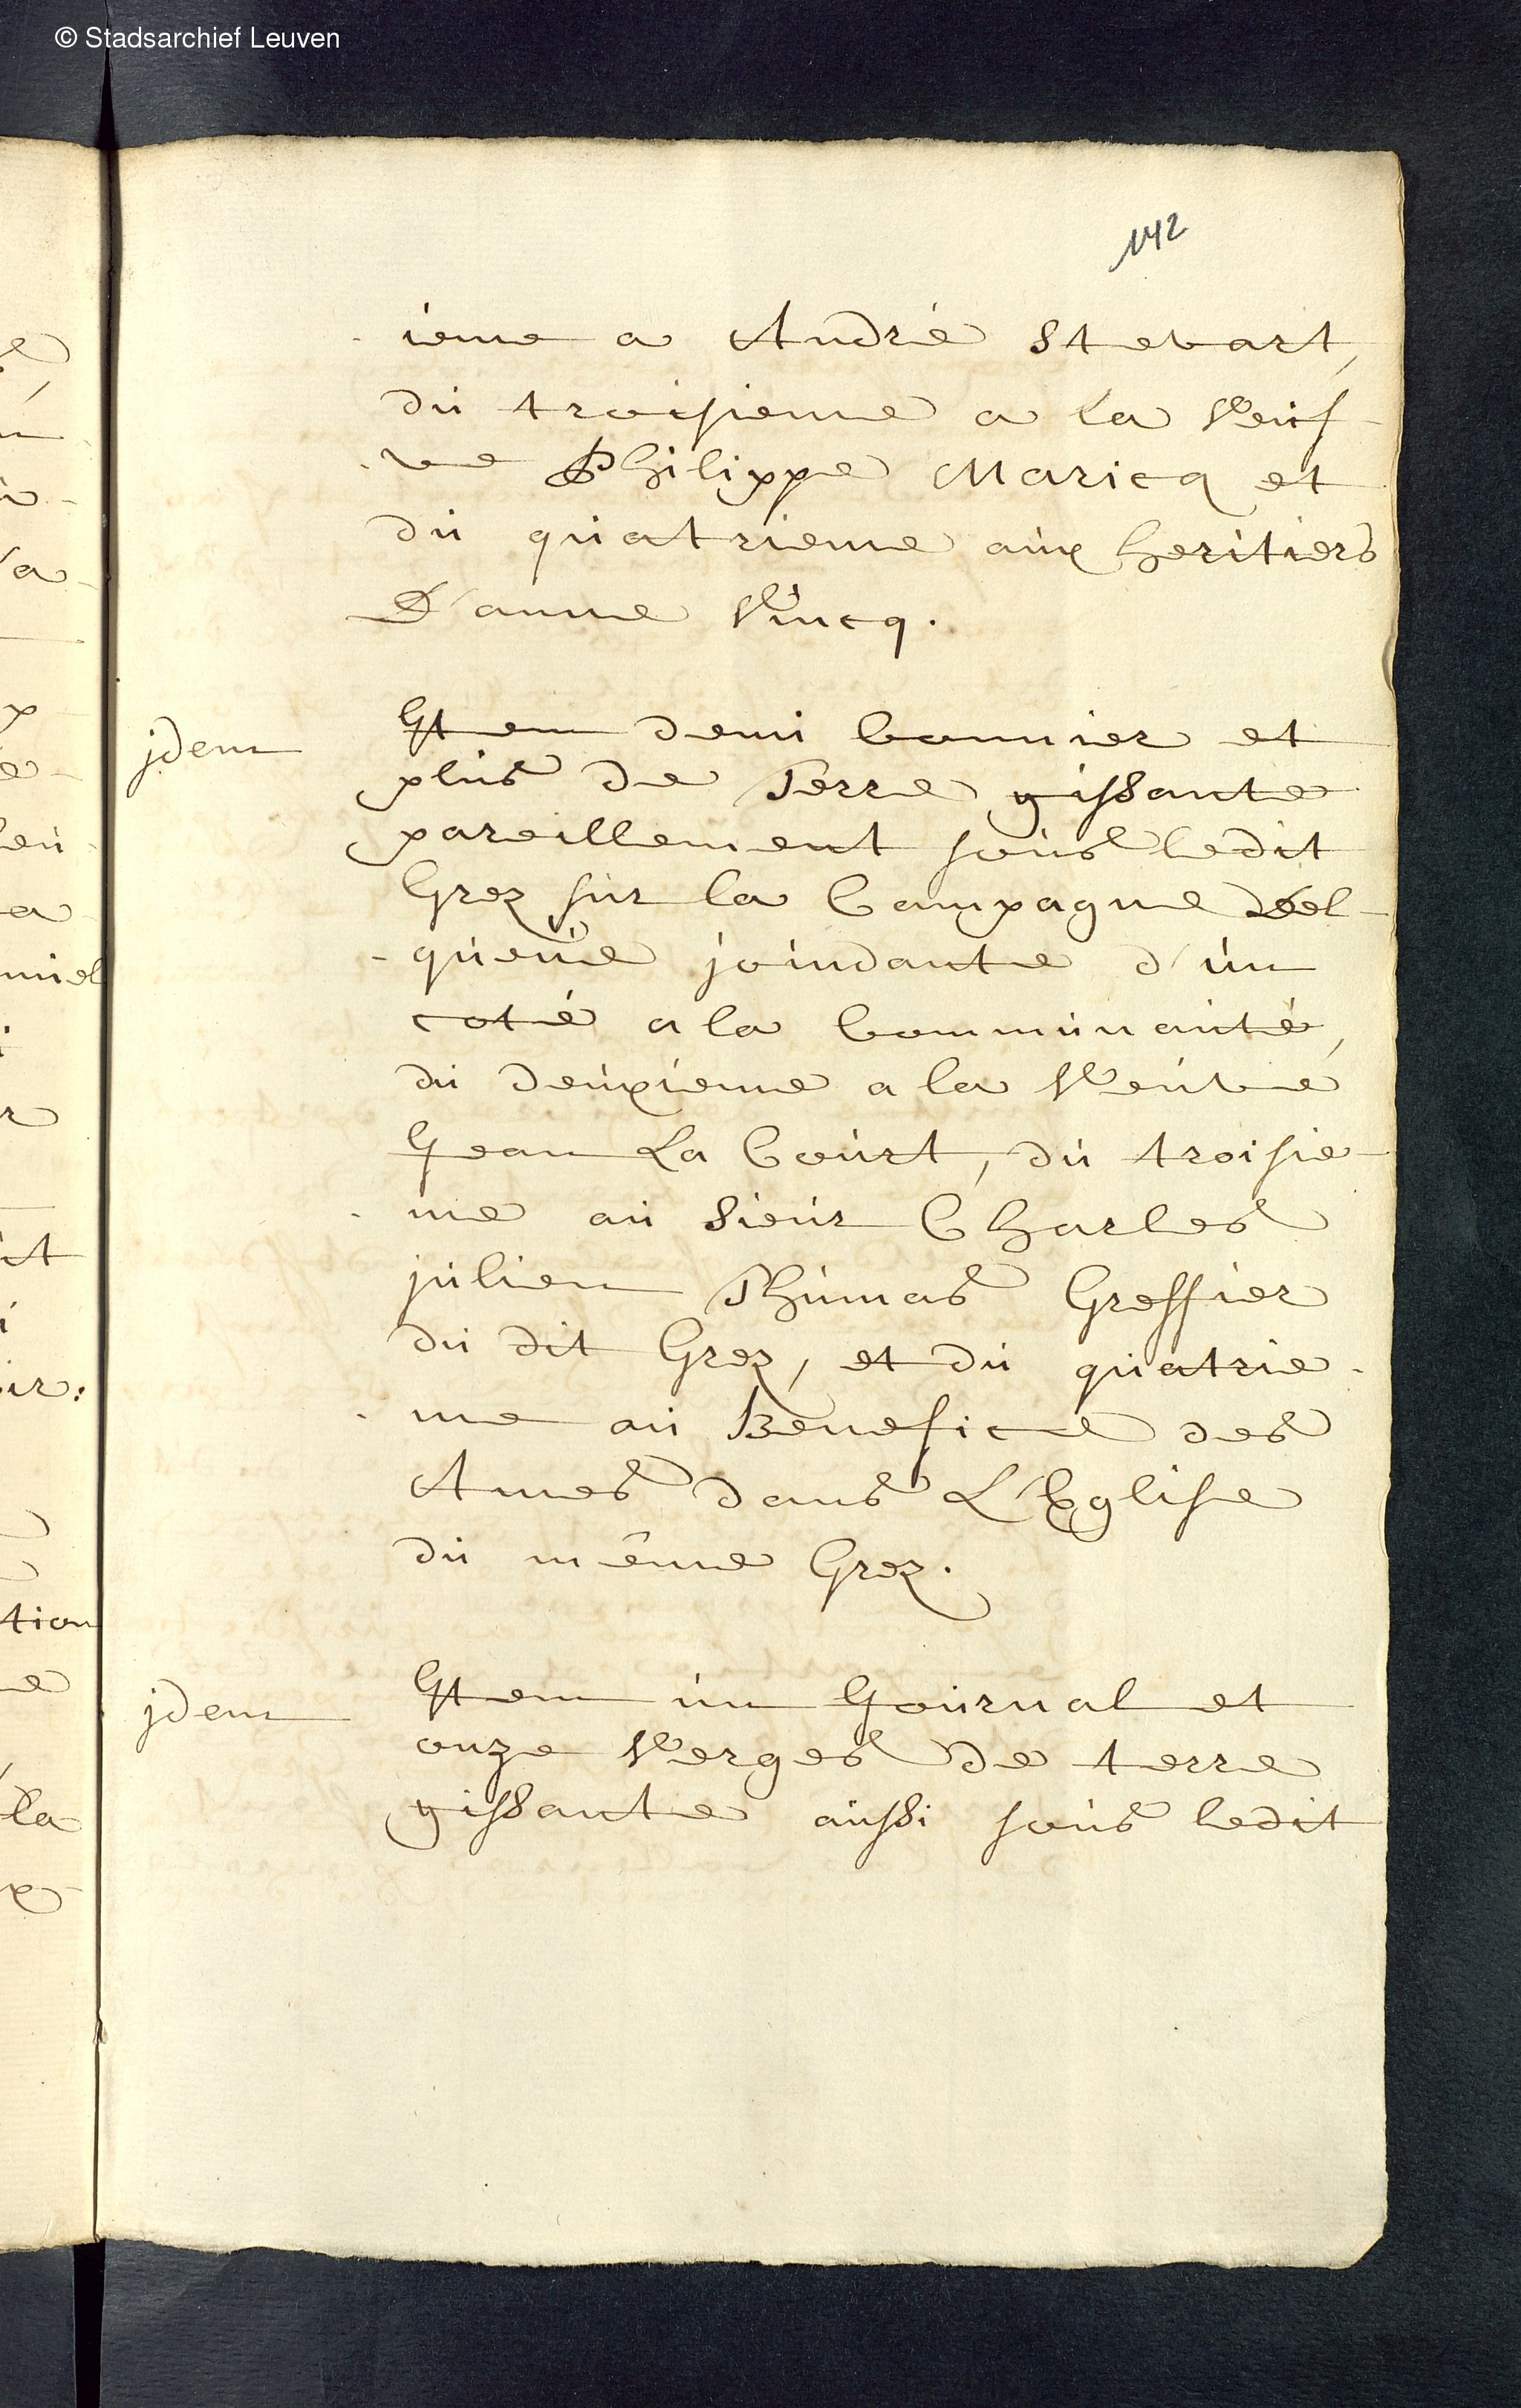 © Stadsarchief Leuven
142
ieme a André Stevart,
du troisieme a la Veuf-
-ve Philippe Maricq et
du quatrieme aux heritiers
D'anne Vincq.
jdem
Item demi bonnier et
plus de Terre gissante
pareillement sous ledit
Grez sur la Campagne Del-
-queüe joindante d'un
coté a la Communauté,
du deuxieme a la Veuve
Jean La Court, du troisie-
-me au Sieur Charles
julien Thumas Greffier
du dit Grez, et du quatrie-
-me au Benefice des
Ames dans L'Eglise
du même Grez.
jdem
Item un Journal et
onze Verges de terre
gissante aussi sous ledit